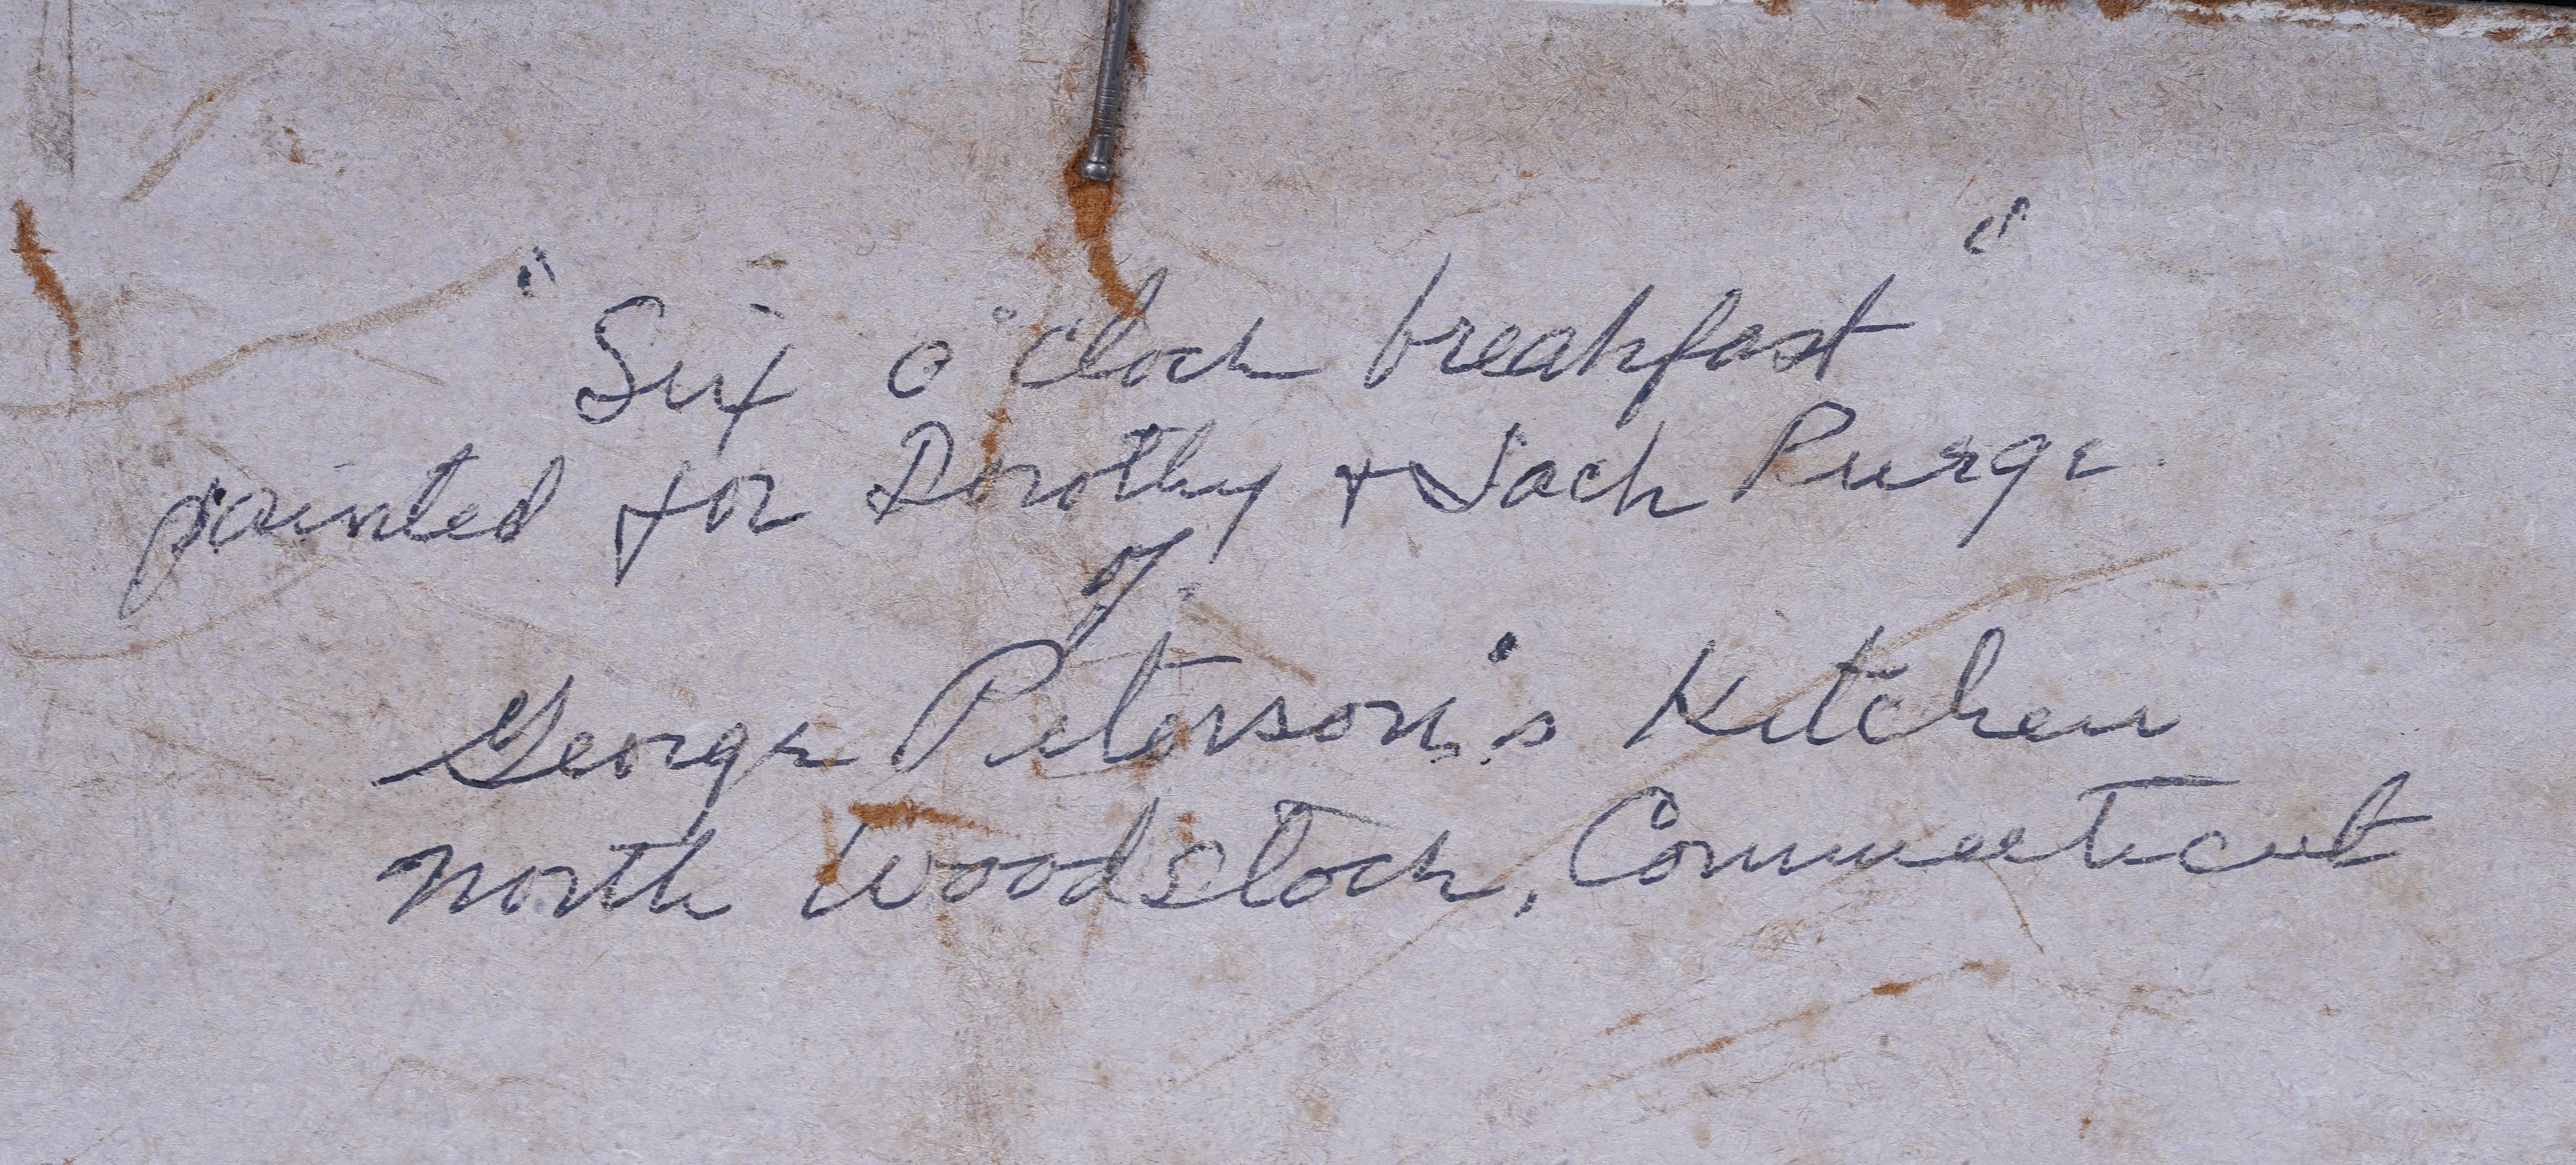 "Six o'Clock breakfast"
painted for Dorothy & Jack Purge
of
George Peterson's Kitchen
North Woodstock, Connecticut